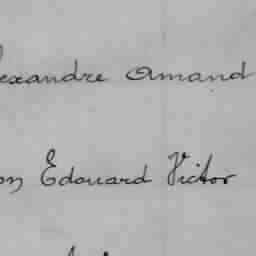 exandre Amand
on Edouard Victor